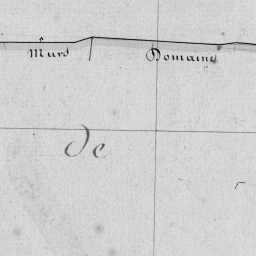 Murs Domaine
de